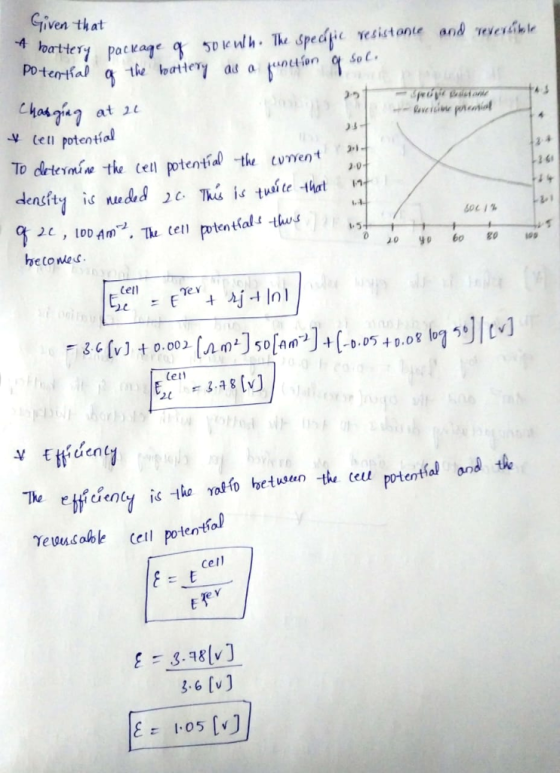 Given that
A battery package of 50kWh. The specific resistance and reversible
potential of the battery as a function of soc.
Charging at 2c
* Cell potential
To determine the cell potential the current
density is needed 2C. This is twice that
of 2C, 100 Am⁻². The cell potentials thus
becomes.
— Specific Resistance
— Reversible potential
SOC / %
0 20 40 60 80 100
E_{2c}^{cell} = E^{rev} + rj + |n|
= 3.6 [V] + 0.002 [Ωm²] 50 [Am⁻²] + [-0.05 + 0.08 log 50] | [V]
E_{2c}^{cell} = 3.78 [V]
* Efficiency
The efficiency is the ratio between the cell potential and the
reversable cell potential
ε = E^{cell} / E^{rev}
ε = 3.78 [V] / 3.6 [V]
ε = 1.05 [V]